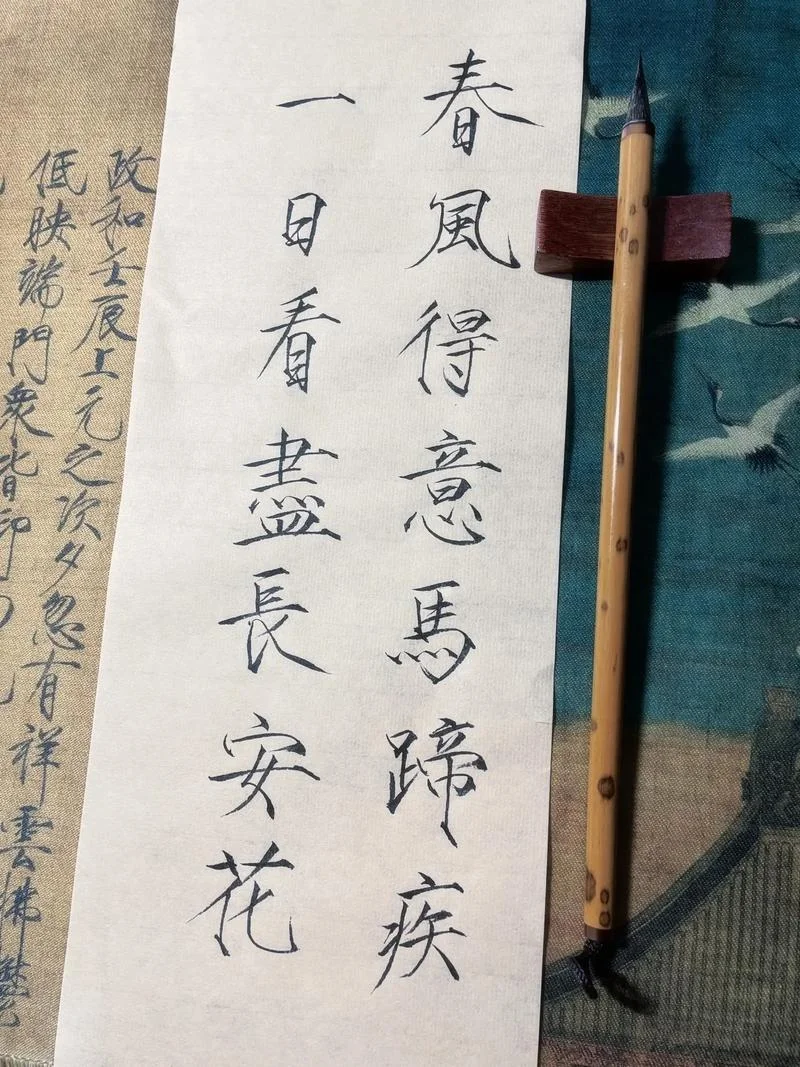 春風得意馬蹄疾
一日看盡長安花
政和壬辰上元之次夕忽有祥雲拂鬱
低映端門衆皆仰